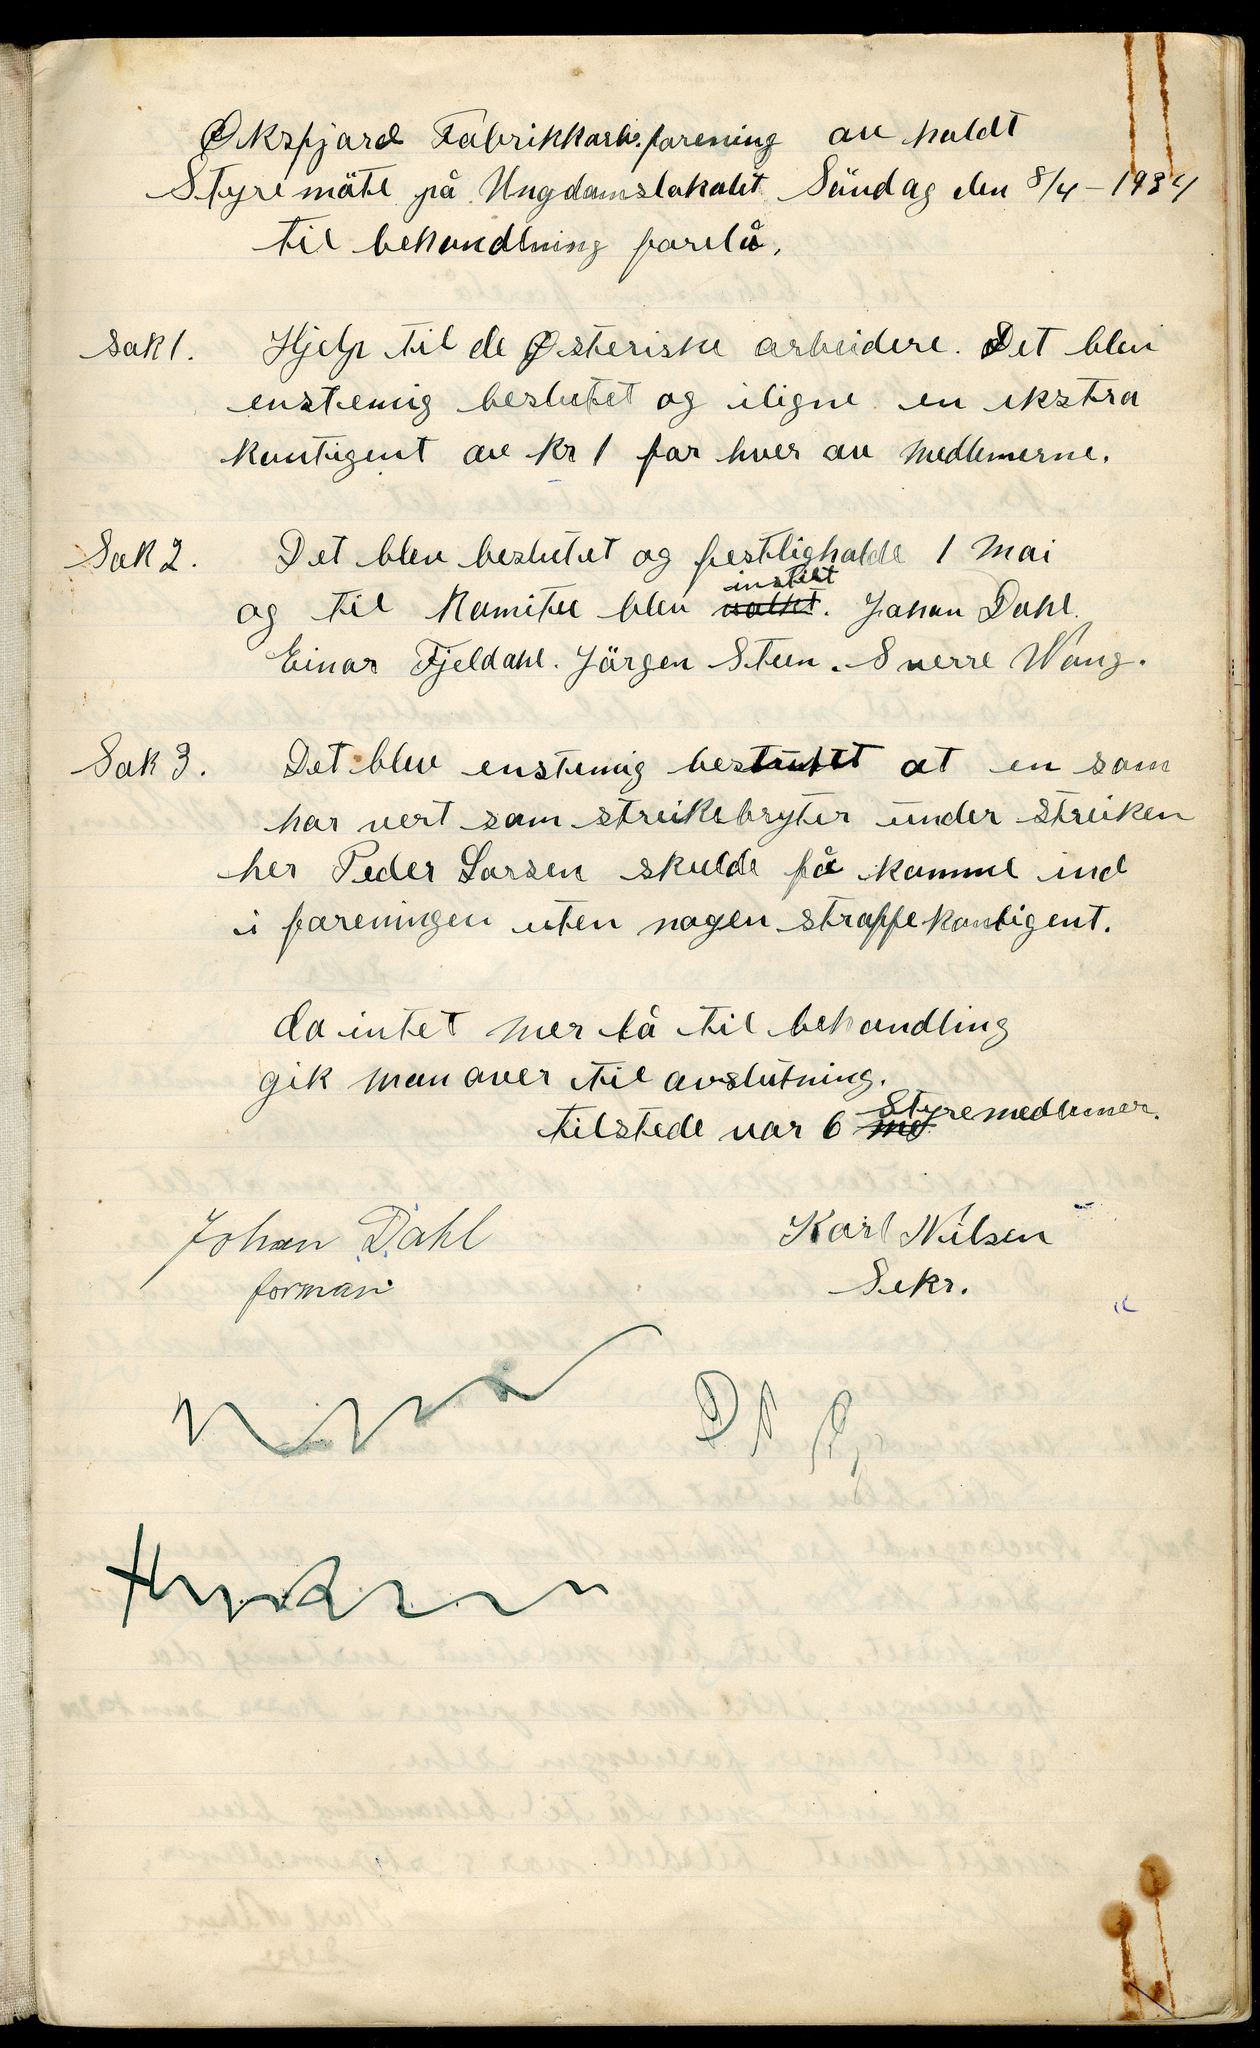 Øksfjord Fabrikkarb.forening av holdt
Styremöte på Ungdomslokalet Söndag den 8/4-1934
til behandlning forelå,
sak 1. Hjelp til de Østeriske arbeidere. Det blev
enstemig beslutet og iligne en ekstra
kontigent av kr 1 for hver av medlemerne.
Sak 2. Det blev beslutet og festligholde 1 Mai
og til Komitee blev instilt valtet. Johan Dahl.
Einar Fjeldahl. Jörgen Steen. Sverre Wang.
Sak 3. Det blev enstemig beslutet at en som
har vert som streikebryter under streiken
her Peder Larsen skulde få komme ind
i foreningen uten nogen straffekontigent.
da intet mer lå til behandling
gik man over til avslutning.
tilstede var 6 Styremedlemer.
Johan Dahl
forman
Karl Nilsen
Sekr.